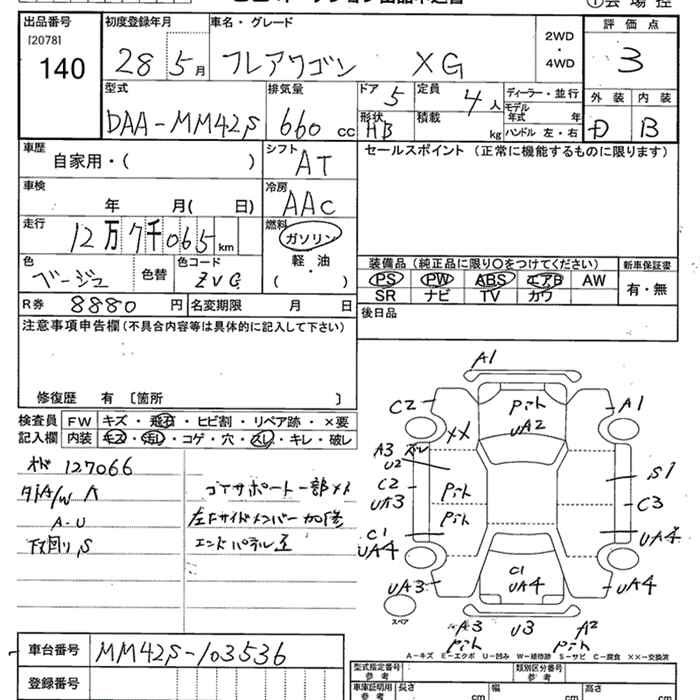 出品番号
[2078]
140
初度登録年月
28 5月
車名・グレード
フレアワゴン XG
2WD
・
4WD
評価点
3
型式
DAA-MM42S
排気量
660 cc
ドア 5
定員 4人
形状 HB
積載 kg
ディーラー・並行
モデル年式 年
ハンドル 左・右
外装 内装
D B
車歴
自家用・( )
シフト
AT
セールスポイント (正常に機能するものに限ります)
車検
年 月( 日)
冷房
AAC
走行
12万7千065km
燃料
ガソリン
軽・油
( )
色
ベージュ
色替
色コード
ZVG
装備品 (純正品に限り○をつけてください)
新車保証書
PS PW ABS エアB AW
SR ナビ TV カワ
有・無
R券 8880円
名変期限 月 日
後日品
注意事項申告欄 (不具合内容等は具体的に記入して下さい)
修復歴 有 [箇所 ]
検査員
記入欄
FW キズ・飛石・ヒビ割・リペア跡・×要
内装 キズ・汚れ・コゲ・穴・スレ・キレ・破レ
127066
A-U
下回り S
コアサポート一部メレ
左Fサイドメンバー加修
エンドパネル歪
A1
C2
A1
ピート
UA2
XX
A3
U2
C2
UA3
S1
C3
ピート
ピート
C1
UA4
UA4
C1
UA4
UA3
UA4
スペア
A3
ピート
U3
A2
ピート
A-キズ E-エクボ U-凹み W-補修跡 S-サビ C-腐食 ××-交換済
車台番号 MM42S-103536
登録番号
型式指定番号 参考
類別区分番号 参考
車庫証明用 参考
長さ cm
幅 cm
高さ cm